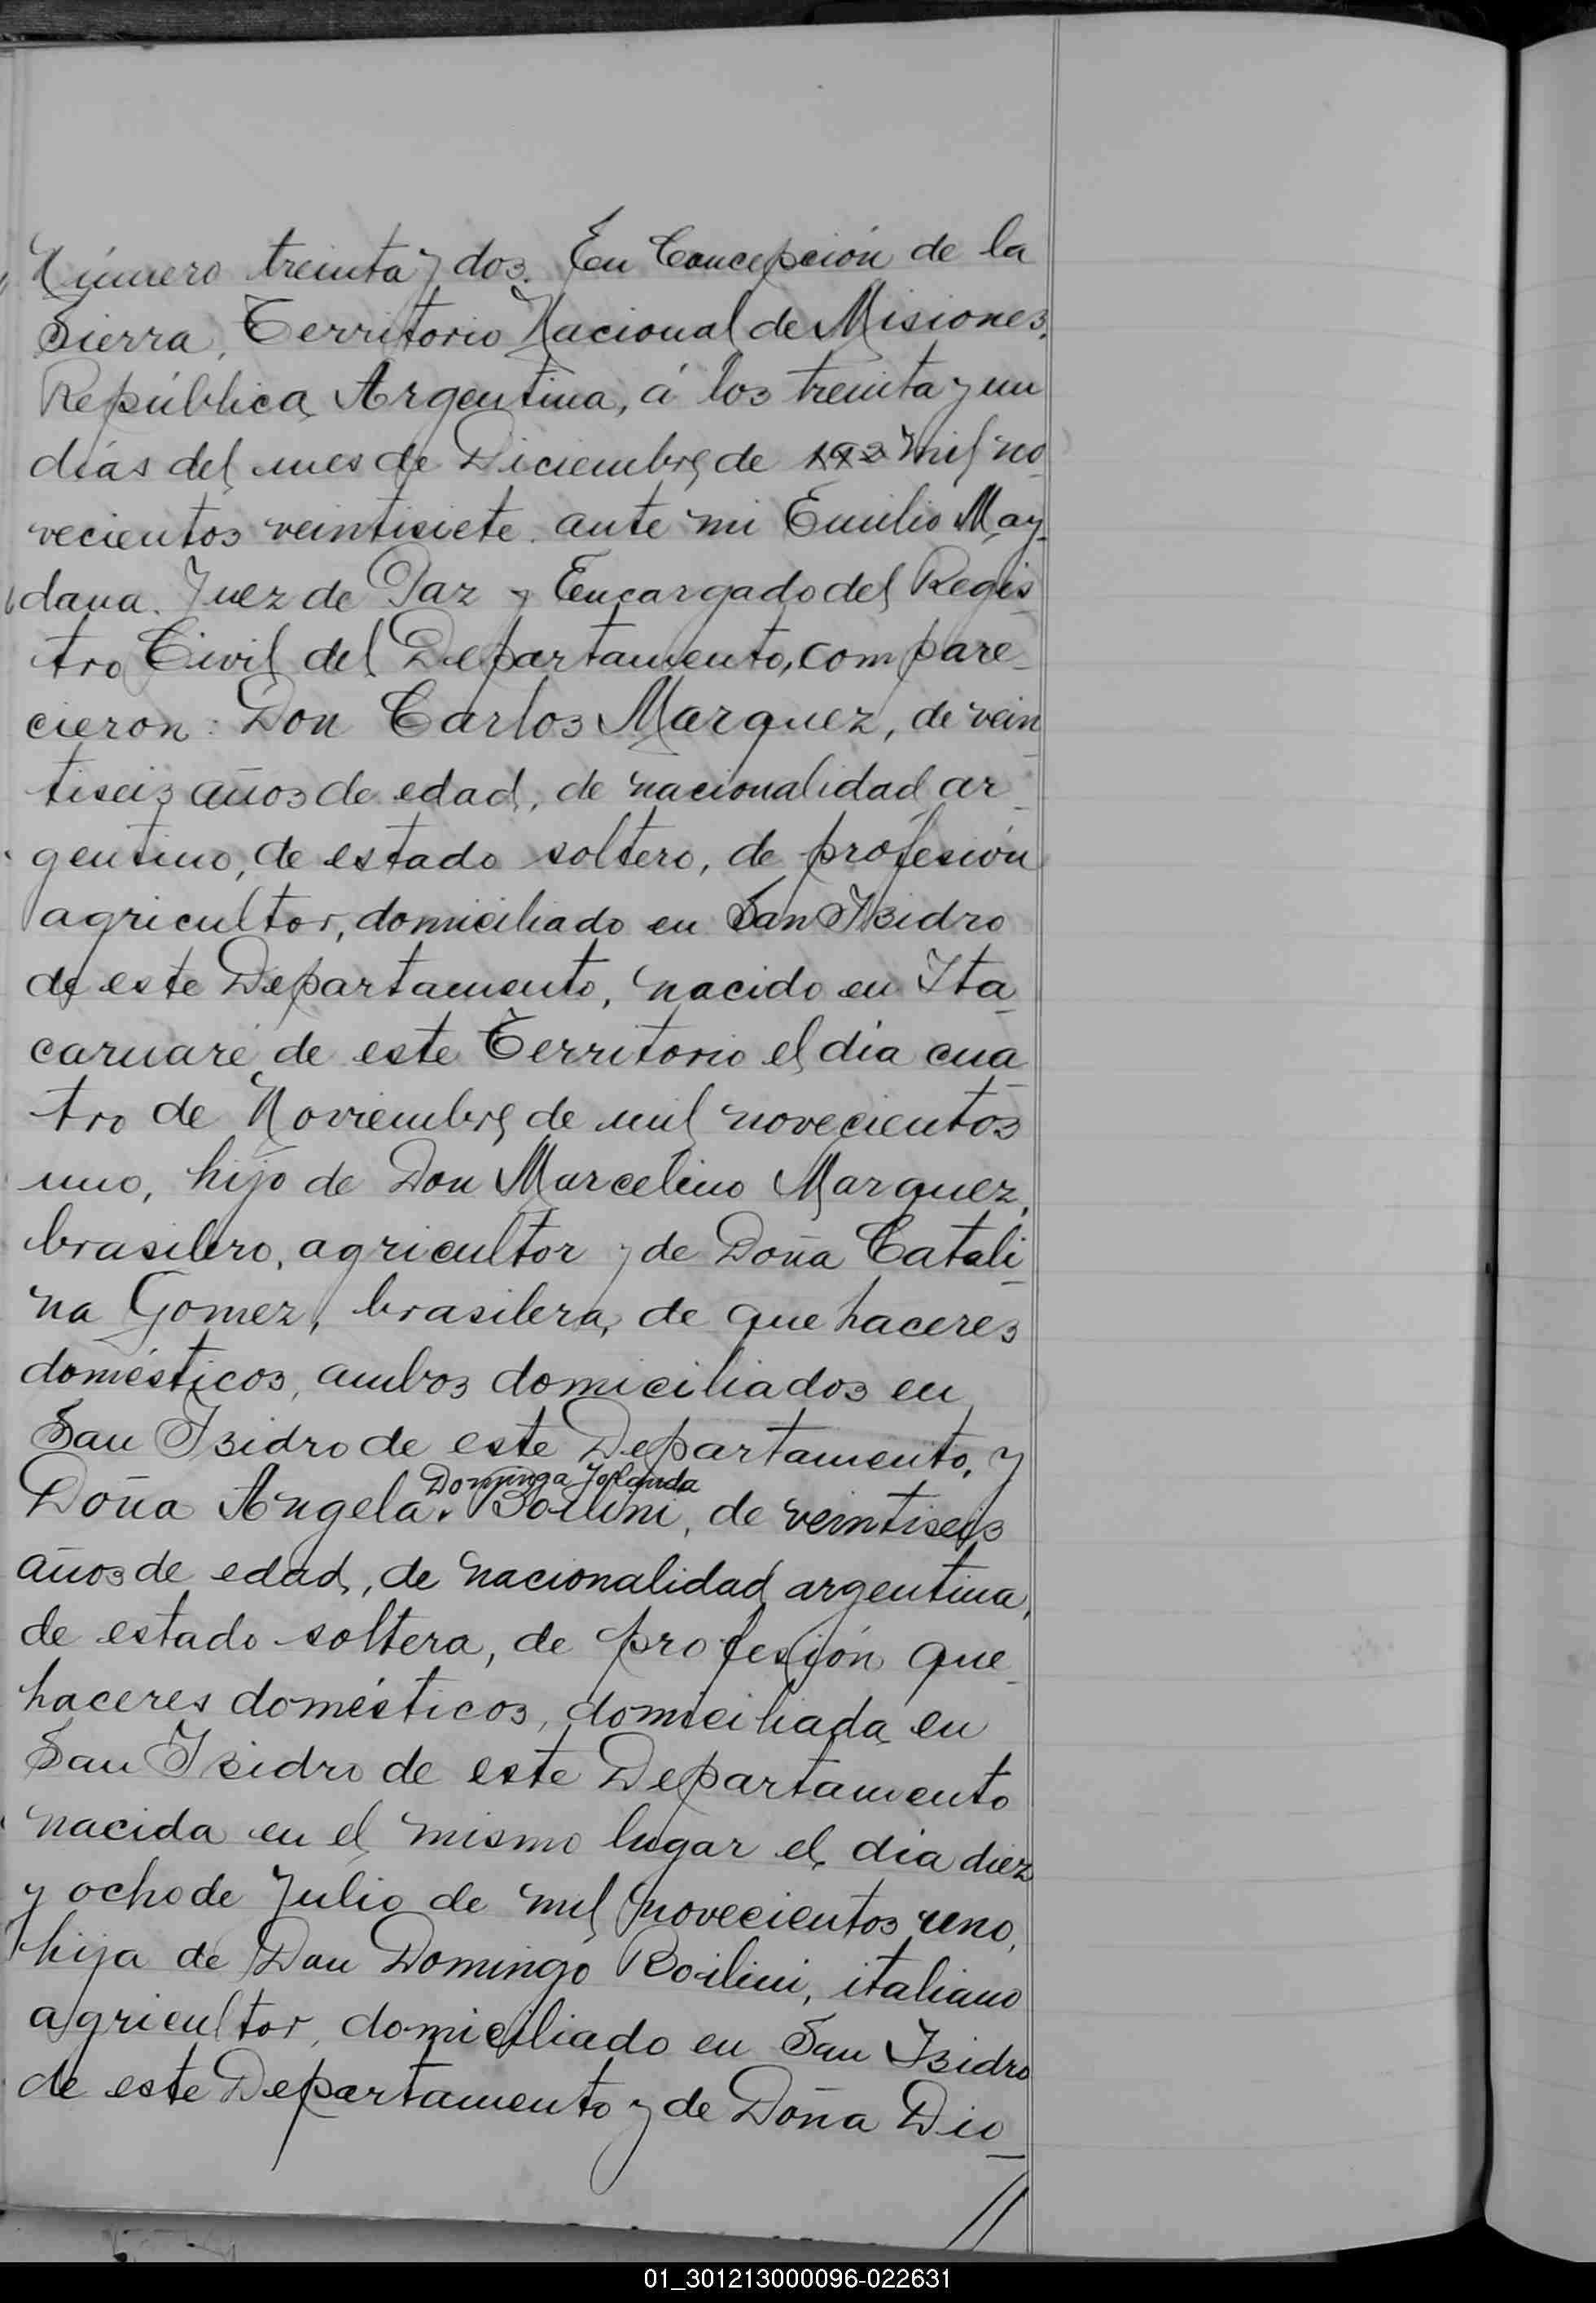 Número treinta y dos. En Concepción de la
Sierra, Territorio Nacional de Misiones,
República Argentina, á los treinta y un
días del mes de Diciembre de 192 mil no
vecientos veintisiete. ante mi Emilio May-
dana. Juez de Paz y Encargado del Regis
tro Civil del Departamento, compare-
cieron: Don Carlos Marquez, de vein
tiseis años de edad, de nacionalidad ar-
gentino, de estado soltero, de profesión
agricultor, domiciliado en San Isidro
de este Departamento, nacido en Ita-
caruaré de este Territorio el día cua
tro de Noviembre de mil novecientos
uno, hijo de Don Marcelino Marquez,
brasilero, agricultor y de Doña Catali-
na Gomez, brasilera, de que haceres
domésticos, ambos domiciliados en
San Isidro de este Departamento, y
Dominga Jolanda
Doña Angela. Boilini, de veintiseis
años de edad, de nacionalidad argentina,
de estado soltera, de profesión que-
haceres domésticos, domiciliada en
San Isidro de este Departamento
nacida en el mismo lugar el día diez
y ocho de Julio de mil novecientos uno,
hija de Don Domingo Boilini, italiano
agricultor, domiciliado en San Isidro
de este Departamento y de Doña Dio-
//
01_301213000096-022631